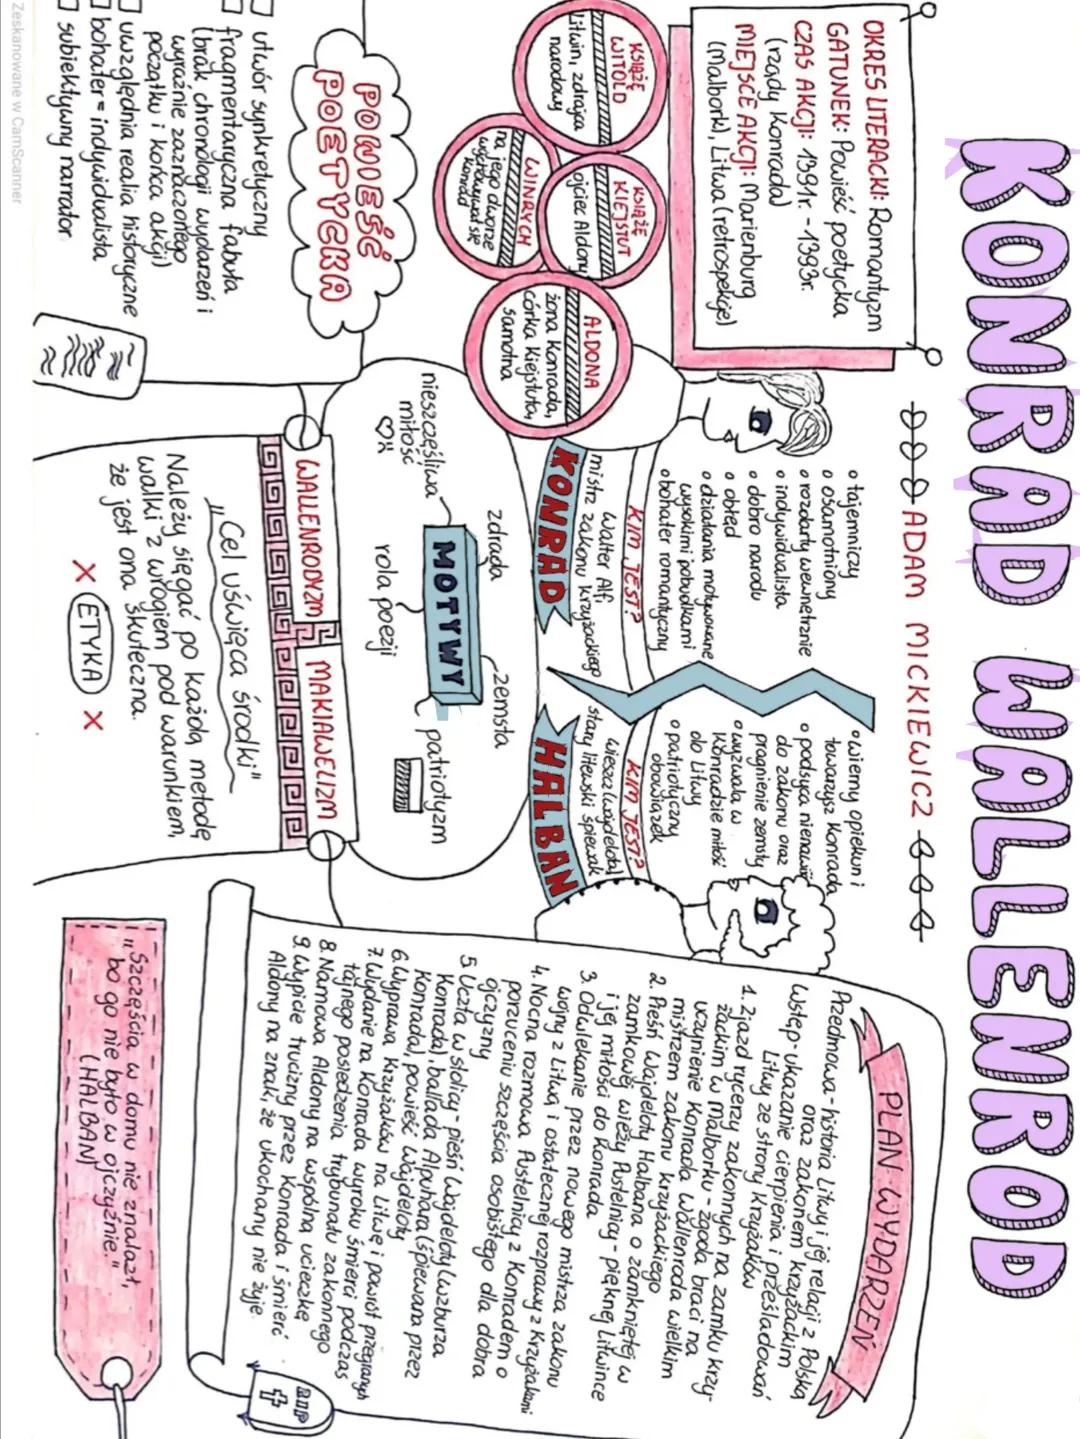 KONRAD WALLENROD
ADAM MICKIEWICZ
OKRES LITERACKI: Romantyzm
GATUNEK: Powieść poetycka
CZAS AKCJI: 1391r. - 1393r.
(rządy Konrada)
MIEJSCE AKCJI: Marienburg
(Malbork), Litwa (retrospekcje)
KSIĄŻĘ
WITOLD
Litwin, zdrajca
narodowy
KSIĄŻĘ
KIEJSTUT
ojciec Aldony
WINRYCH
na jego dworze
wychowywał się
Konrad
ALDONA
żona Konrada,
córka Kiejstuta,
samotna
POWIEŚĆ
POETYCKA
utwór synkretyczny
fragmentaryczna fabuła
(brak chronologii wydarzeń i
wyraźnie zaznaczonego
początku i końca akcji)
uwzględnia realia historyczne
bohater = indywidualista
subiektywny narrator
• tajemniczy
• osamotniony
• rozdarty wewnętrznie
• indywidualista
• dobro narodu
• obłęd
• działania motywowane
wysokimi pobudkami
• bohater romantyczny
KIM JEST?
Walter Alf,
mistrz zakonu krzyżackiego
KONRAD
• wierny opiekun i
towarzysz Konrada
• podsyca nienawiść
do zakonu oraz
pragnienie zemsty
• wyzwala w
Konradzie miłość
do Litwy
• patriotyczny
obowiązek
KIM JEST?
wieszcz (wajdelota),
stary litewski śpiewak
HALBAN
MOTYWY
zdrada
zemsta
nieszczęśliwa
miłość
rola poezji
patriotyzm
WALLENRODYZM
MAKIAWELIZM
„Cel uświęca środki"
Należy sięgać po każdą metodę
walki z wrogiem pod warunkiem,
że jest ona skuteczna.
X ETYKA X
PLAN WYDARZEŃ
Przedmowa - historia Litwy i jej relacji z Polską
oraz zakonem krzyżackim
Wstęp - ukazanie cierpienia i prześladowań
Litwy ze strony Krzyżaków
1. Zjazd rycerzy zakonnych na zamku krzy-
żackim w Malborku - zgoda braci na
uczynienie Konrada Wallenroda wielkim
mistrzem zakonu krzyżackiego
2. Pieśń Wajdeloty Halbana o zamkniętej w
zamkowej wieży Pustelnicy - pięknej Litwince
i jej miłości do Konrada
3. Odwlekanie przez nowego mistrza zakonu
wojny z Litwą i ostatecznej rozprawy z Krzyżakami
4. Nocna rozmowa Pustelnicy z Konradem o
porzuceniu szczęścia osobistego dla dobra
ojczyzny
5. Uczta w stolicy - pieśń Wajdeloty (wzburza
Konrada), ballada Alpuhara (śpiewana przez
Konrada), powieść Wajdeloty
6. Wyprawa Krzyżaków na Litwę i powrót przegranych
7. Wydanie na Konrada wyroku śmierci podczas
tajnego posiedzenia trybunału zakonnego
8. Namowa Aldony na wspólną ucieczkę
9. Wypicie trucizny przez Konrada i śmierć
Aldony na znak, że ukochany nie żyje
RIP
„Szczęścia w domu nie znalazł,
bo go nie było w ojczyźnie."
(HALBAN)
Zeskanowane w CamScanner